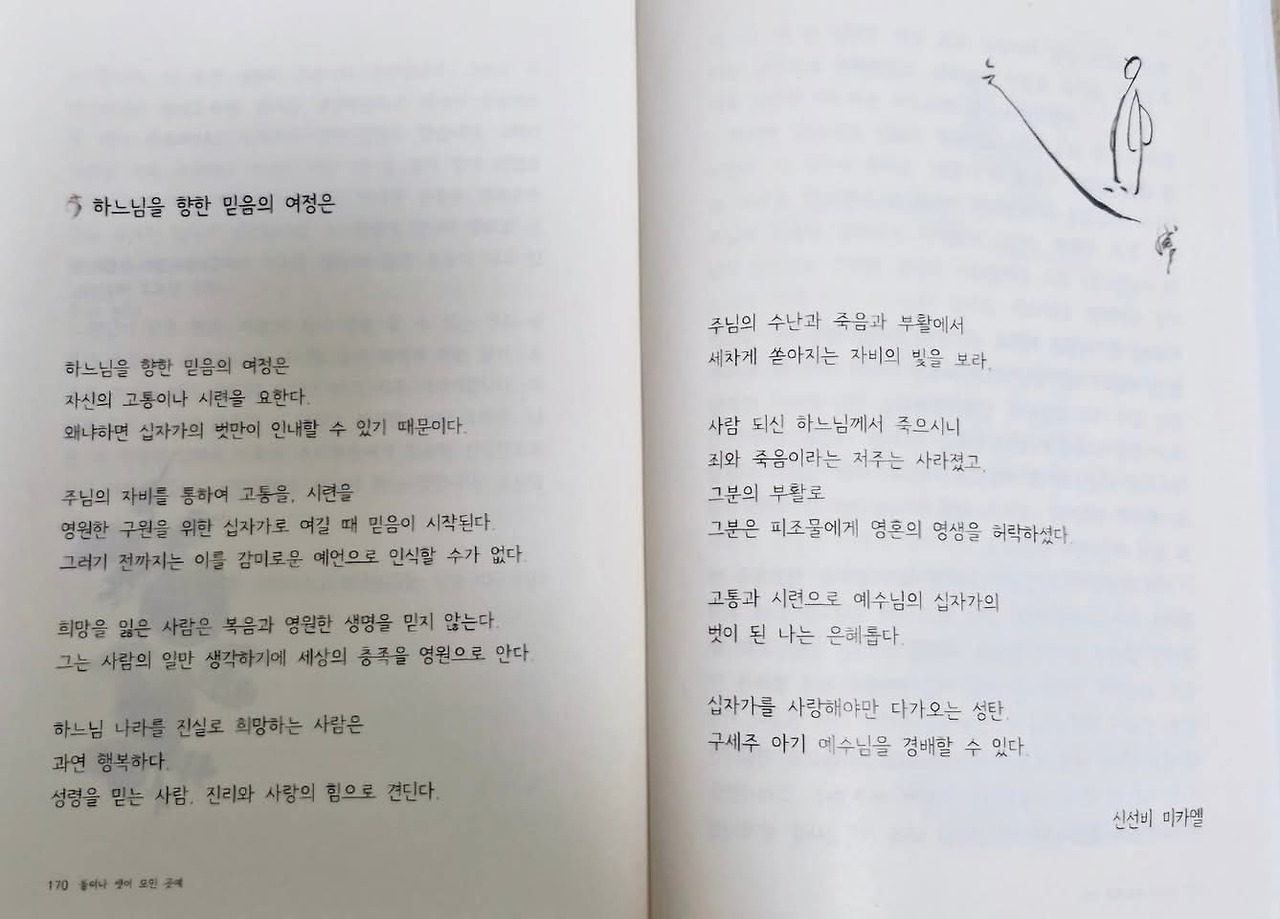 하느님을 향한 믿음의 여정은
하느님을 향한 믿음의 여정은
자신의 고통이나 시련을 요한다.
왜냐하면 십자가의 벗만이 인내할 수 있기 때문이다.
주님의 자비를 통하여 고통을, 시련을
영원한 구원을 위한 십자가로 여길 때 믿음이 시작된다.
그러기 전까지는 이를 감미로운 예언으로 인식할 수가 없다.
희망을 잃은 사람은 복음과 영원한 생명을 믿지 않는다.
그는 사람의 일만 생각하기에 세상의 충족을 영원으로 안다.
하느님 나라를 진실로 희망하는 사람은
과연 행복하다.
성령을 믿는 사람, 진리와 사랑의 힘으로 견딘다.
170 둘이나 셋이 모인 곳에
주님의 수난과 죽음과 부활에서
세차게 쏟아지는 자비의 빛을 보라.
사람 되신 하느님께서 죽으시니
죄와 죽음이라는 저주는 사라졌고,
그분의 부활로
그분은 피조물에게 영혼의 영생을 허락하셨다.
고통과 시련으로 예수님의 십자가의
벗이 된 나는 은혜롭다.
십자가를 사랑해야만 다가오는 성탄.
구세주 아기 예수님을 경배할 수 있다.
신선비 미카엘